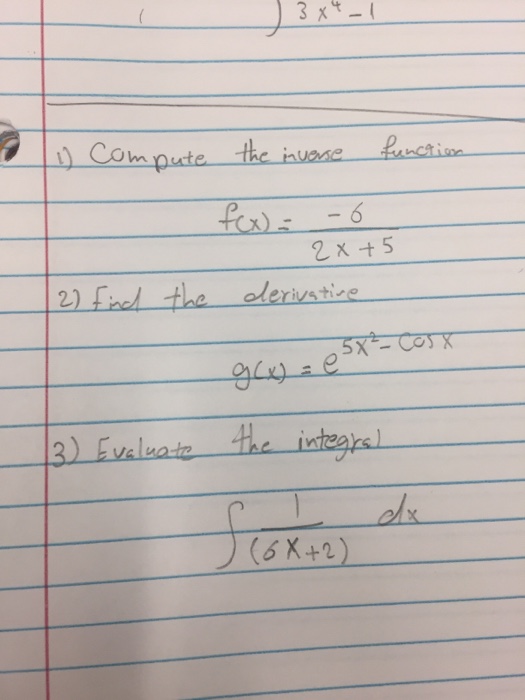 ) 3x⁴-1
1) Compute the inverse function
f(x) = -6
2x+5
2) Find the derivative
g(x) = e^5x²-cosx
3) Evaluate the integral
∫ 1 dx
(6x+2)